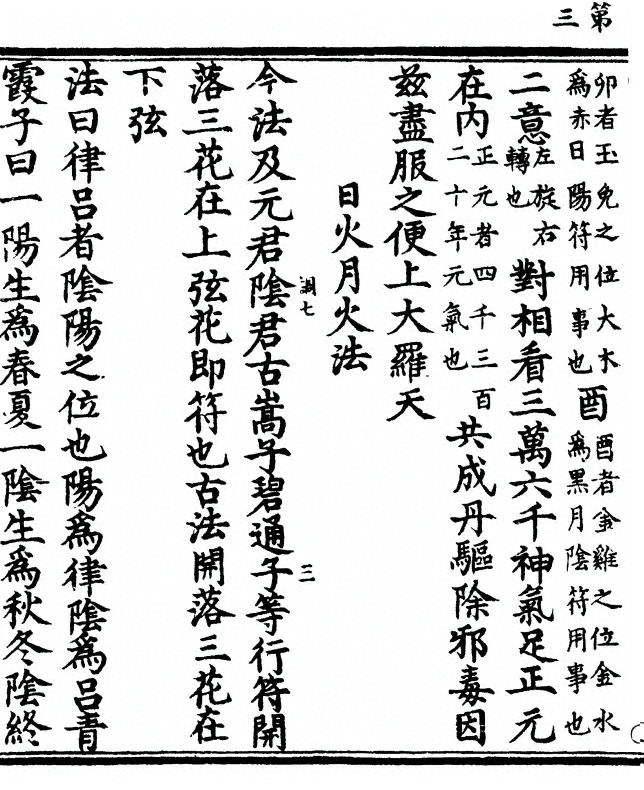 第三
卯者玉兔之位大木
爲赤日陽符用事也
酉
酉者金雞之位金水
爲黑月陰符用事也
二意
左旋右
轉也
對相看三萬六千神氣足正元
在内
正元者四千三百
二十年元氣也
共成丹驅除邪毒因
茲盡服之便上大羅天
日火月火法
調七
三
今法及元君陰君古嵩子碧通子等行符開
落三花在上弦花即符也古法開落三花在
下弦
法曰律吕者陰陽之位也陽爲律陰爲吕青
霞子曰一陽生爲春夏一陰生爲秋冬陰終